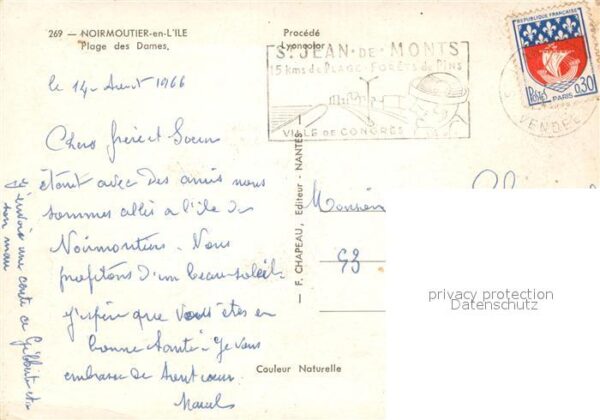 269 — NOIRMOUTIER-en-L'ILE
Plage des Dames.
Procédé
Lyoncolor
S. JEAN-DE-MONTS
15 kms de PLAGE-FORÊTS de PINS
VILLE DE CONGRES
REPUBLIQUE FRANCAISE
Postes
PARIS
0,30
VENDEE
le 14 Aout 1966
Chers frère et Soeur
étant avec des amis nous
sommes allés a l'ile de
Noirmoutiers. Nous
profitons d'un beau soleil
j'espère que vous êtes en
bonne Santé. Je vous
embrasse de tout coeur
Marcel
J'envoie une carte a Gilbert et
son mari
F. CHAPEAU, Editeur - NANTES
Monsieur
93
Couleur Naturelle
privacy protection
Datenschutz